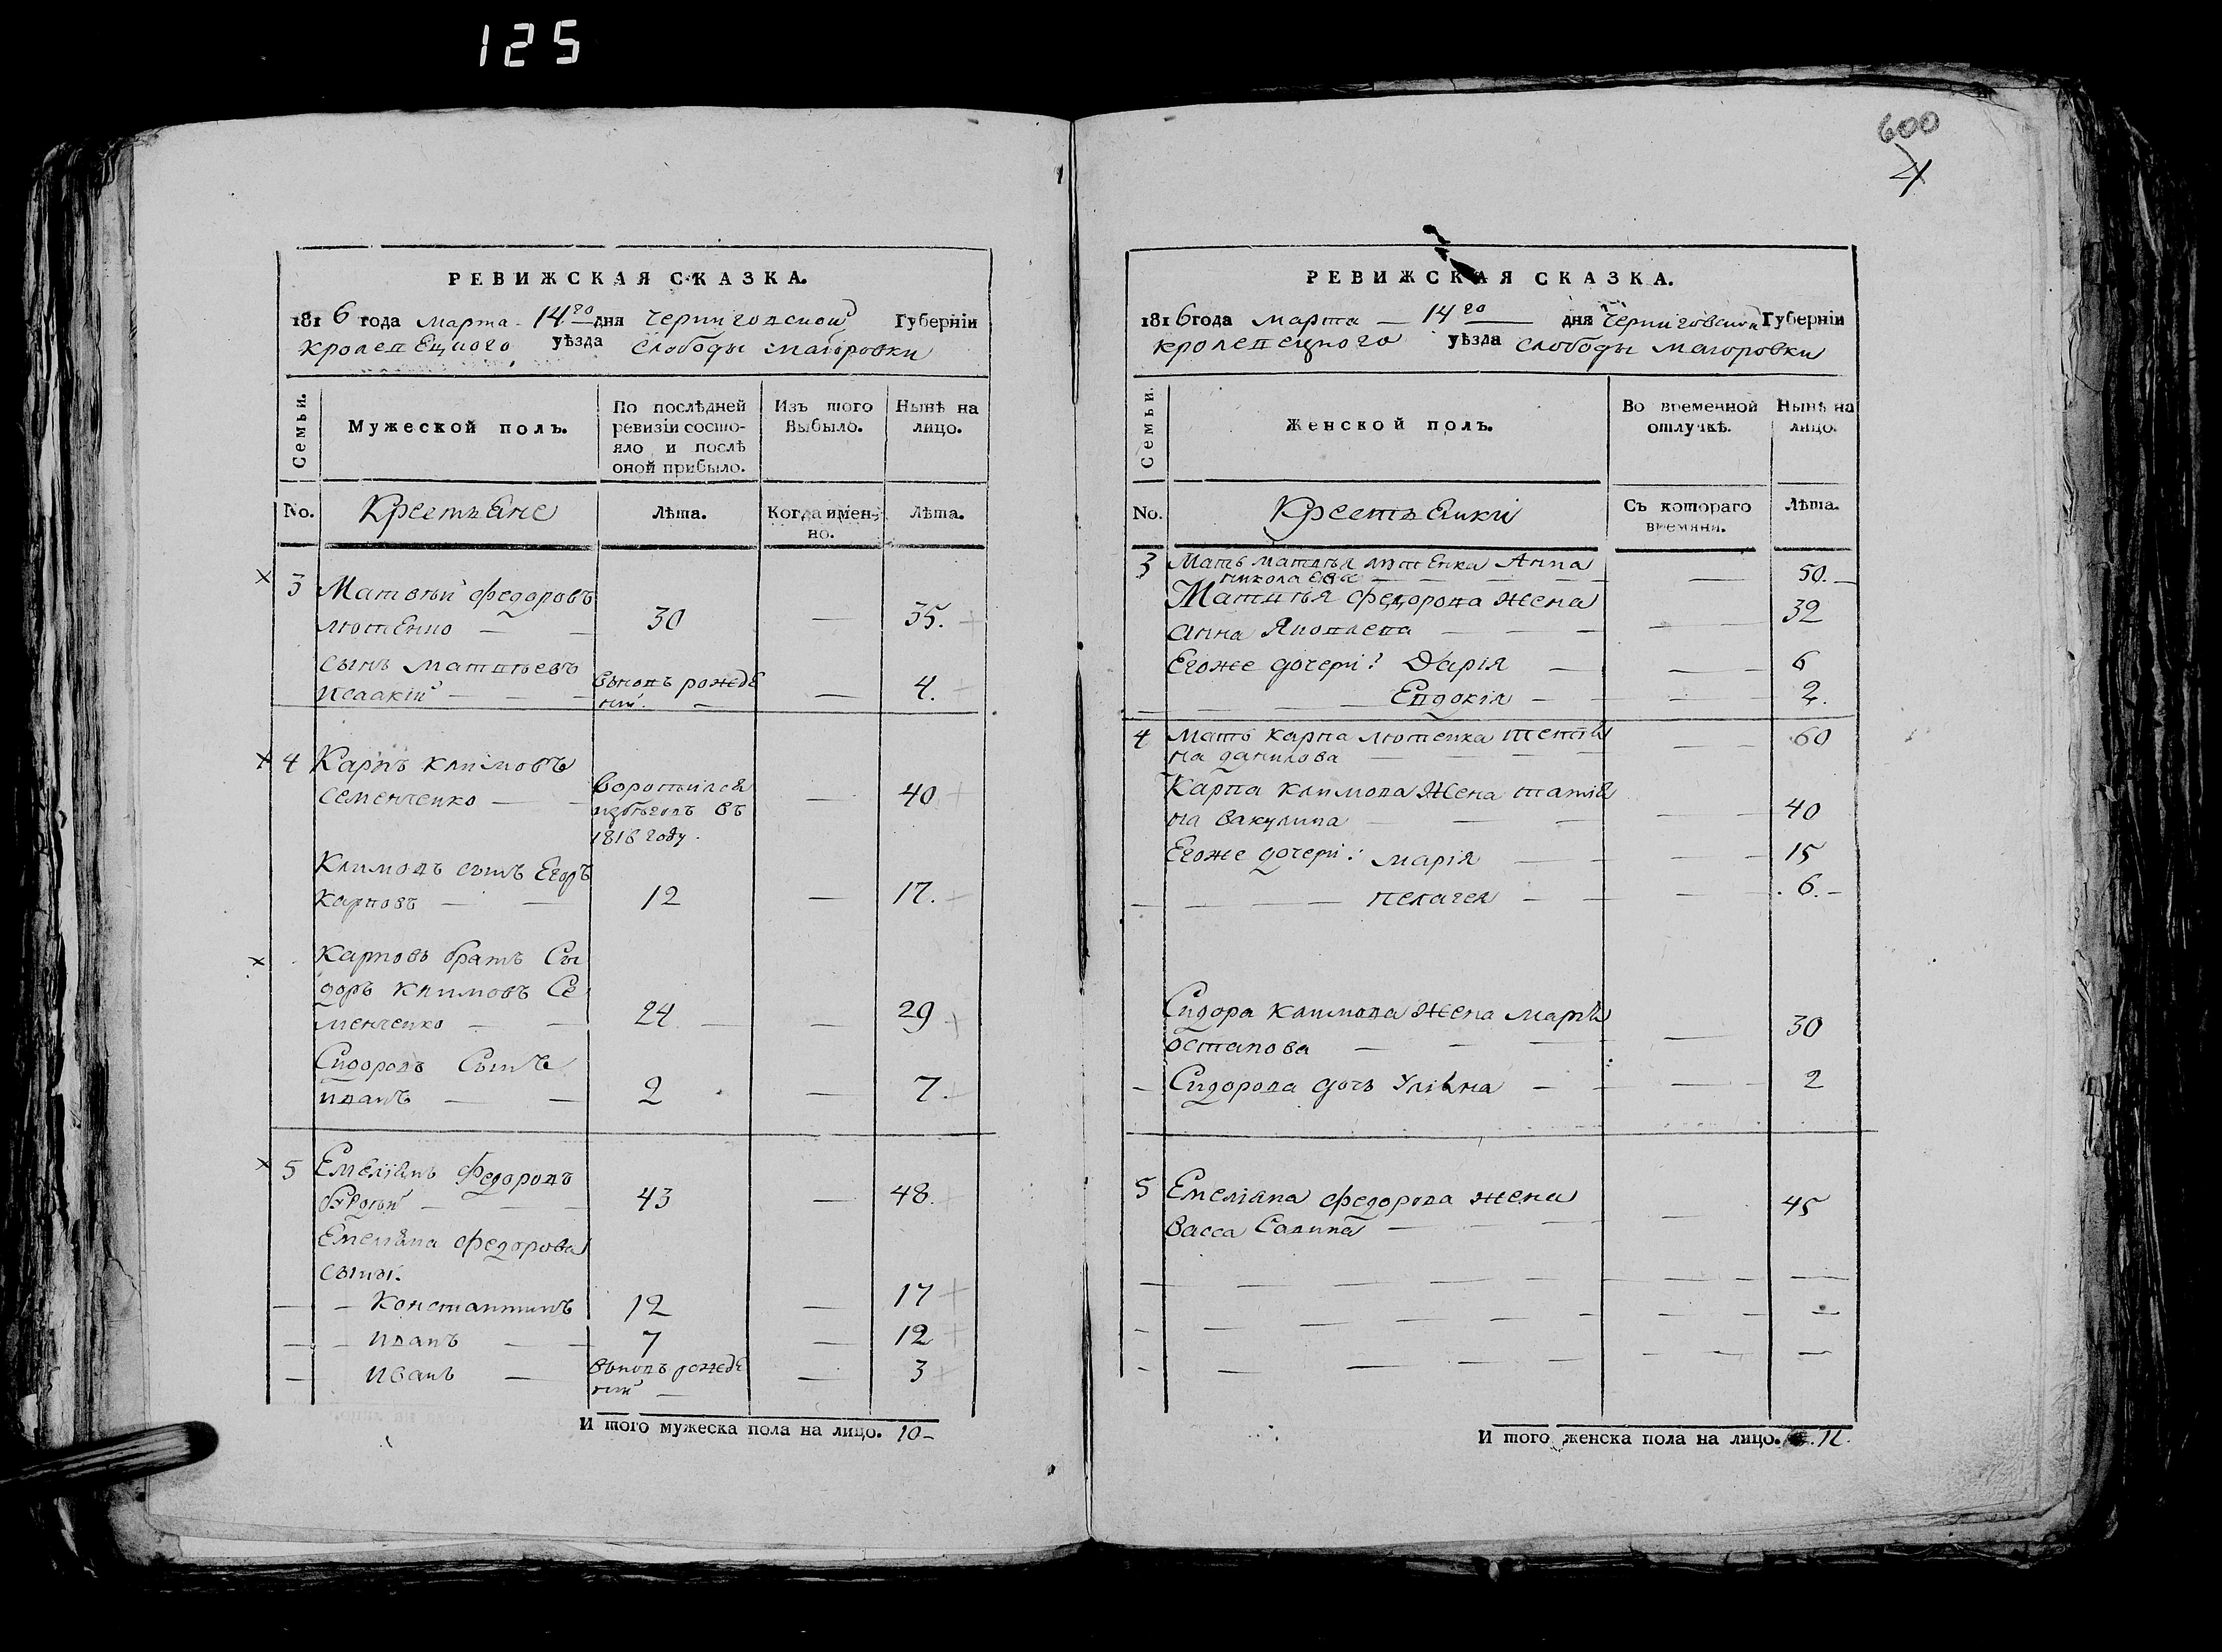 125
600
4
РЕВИЖСКАЯ СКАЗКА.
1816 года марта 14го дня черниговской Губернiи
кролевецкого уѣзда слободы маюровки
Семьи.
Мужеской полъ.
По послѣдней ревизiи состояло и послѣ оной прибыло.
Изъ того Выбыло.
Нынѣ на лицо.
No.
Крестьяне
Лѣта.
Когда именно.
Лѣта.
3 Матвѣй федоровъ
лютенко — 30 — 35.
сынъ матвѣевъ
исаакiй — вновь рожденный — 4.
4 Карпъ климовъ
семенченко — воротился
избѣговъ въ
1816 году. — 40
Климовъ сынъ Егоръ
карповъ — 12 — 17.
Карповъ братъ Сы
доръ климовъ Се
менченко — 24 — 29
Сидоровъ Сынъ
иванъ — 2 — 7.
5 Емелiянъ Федоровъ
43 — 48.
Емелiяна федорова
сыны:
Константинъ 12 — 17
иванъ — 7 — 12
иванъ — вновь рожденный — 3
И того мужеска пола на лицо. 10
РЕВИЖСКАЯ СКАЗКА.
1816 года марта — 14го дня Черниговской Губернiи
кролевецкого уѣзда слободы маюровки
Семьи.
Женской полъ.
Во временной отлучкѣ.
Нынѣ на лицо.
No.
Крестьянки
Съ котораго времяни.
Лѣта.
3 Мать матвѣя лютенка Анна
николаева — 50.
Матвѣя федорова жена
анна Яковлева — 32
Егоже дочери: Дарiя — 6
Евдокiя — 2.
4 мать карпа лютенка
данилова — 60
Карпа климова жена татiя
на вакулина — 40
Егоже дочери: марiя — 15
пелагея — 6.
Сидора климова жена марья
остапова — 30
Сидорова дочь Улiяна — 2
5 Емелiяна федорова жена
васса Савина — 45
И того женска пола на лицо. 11.